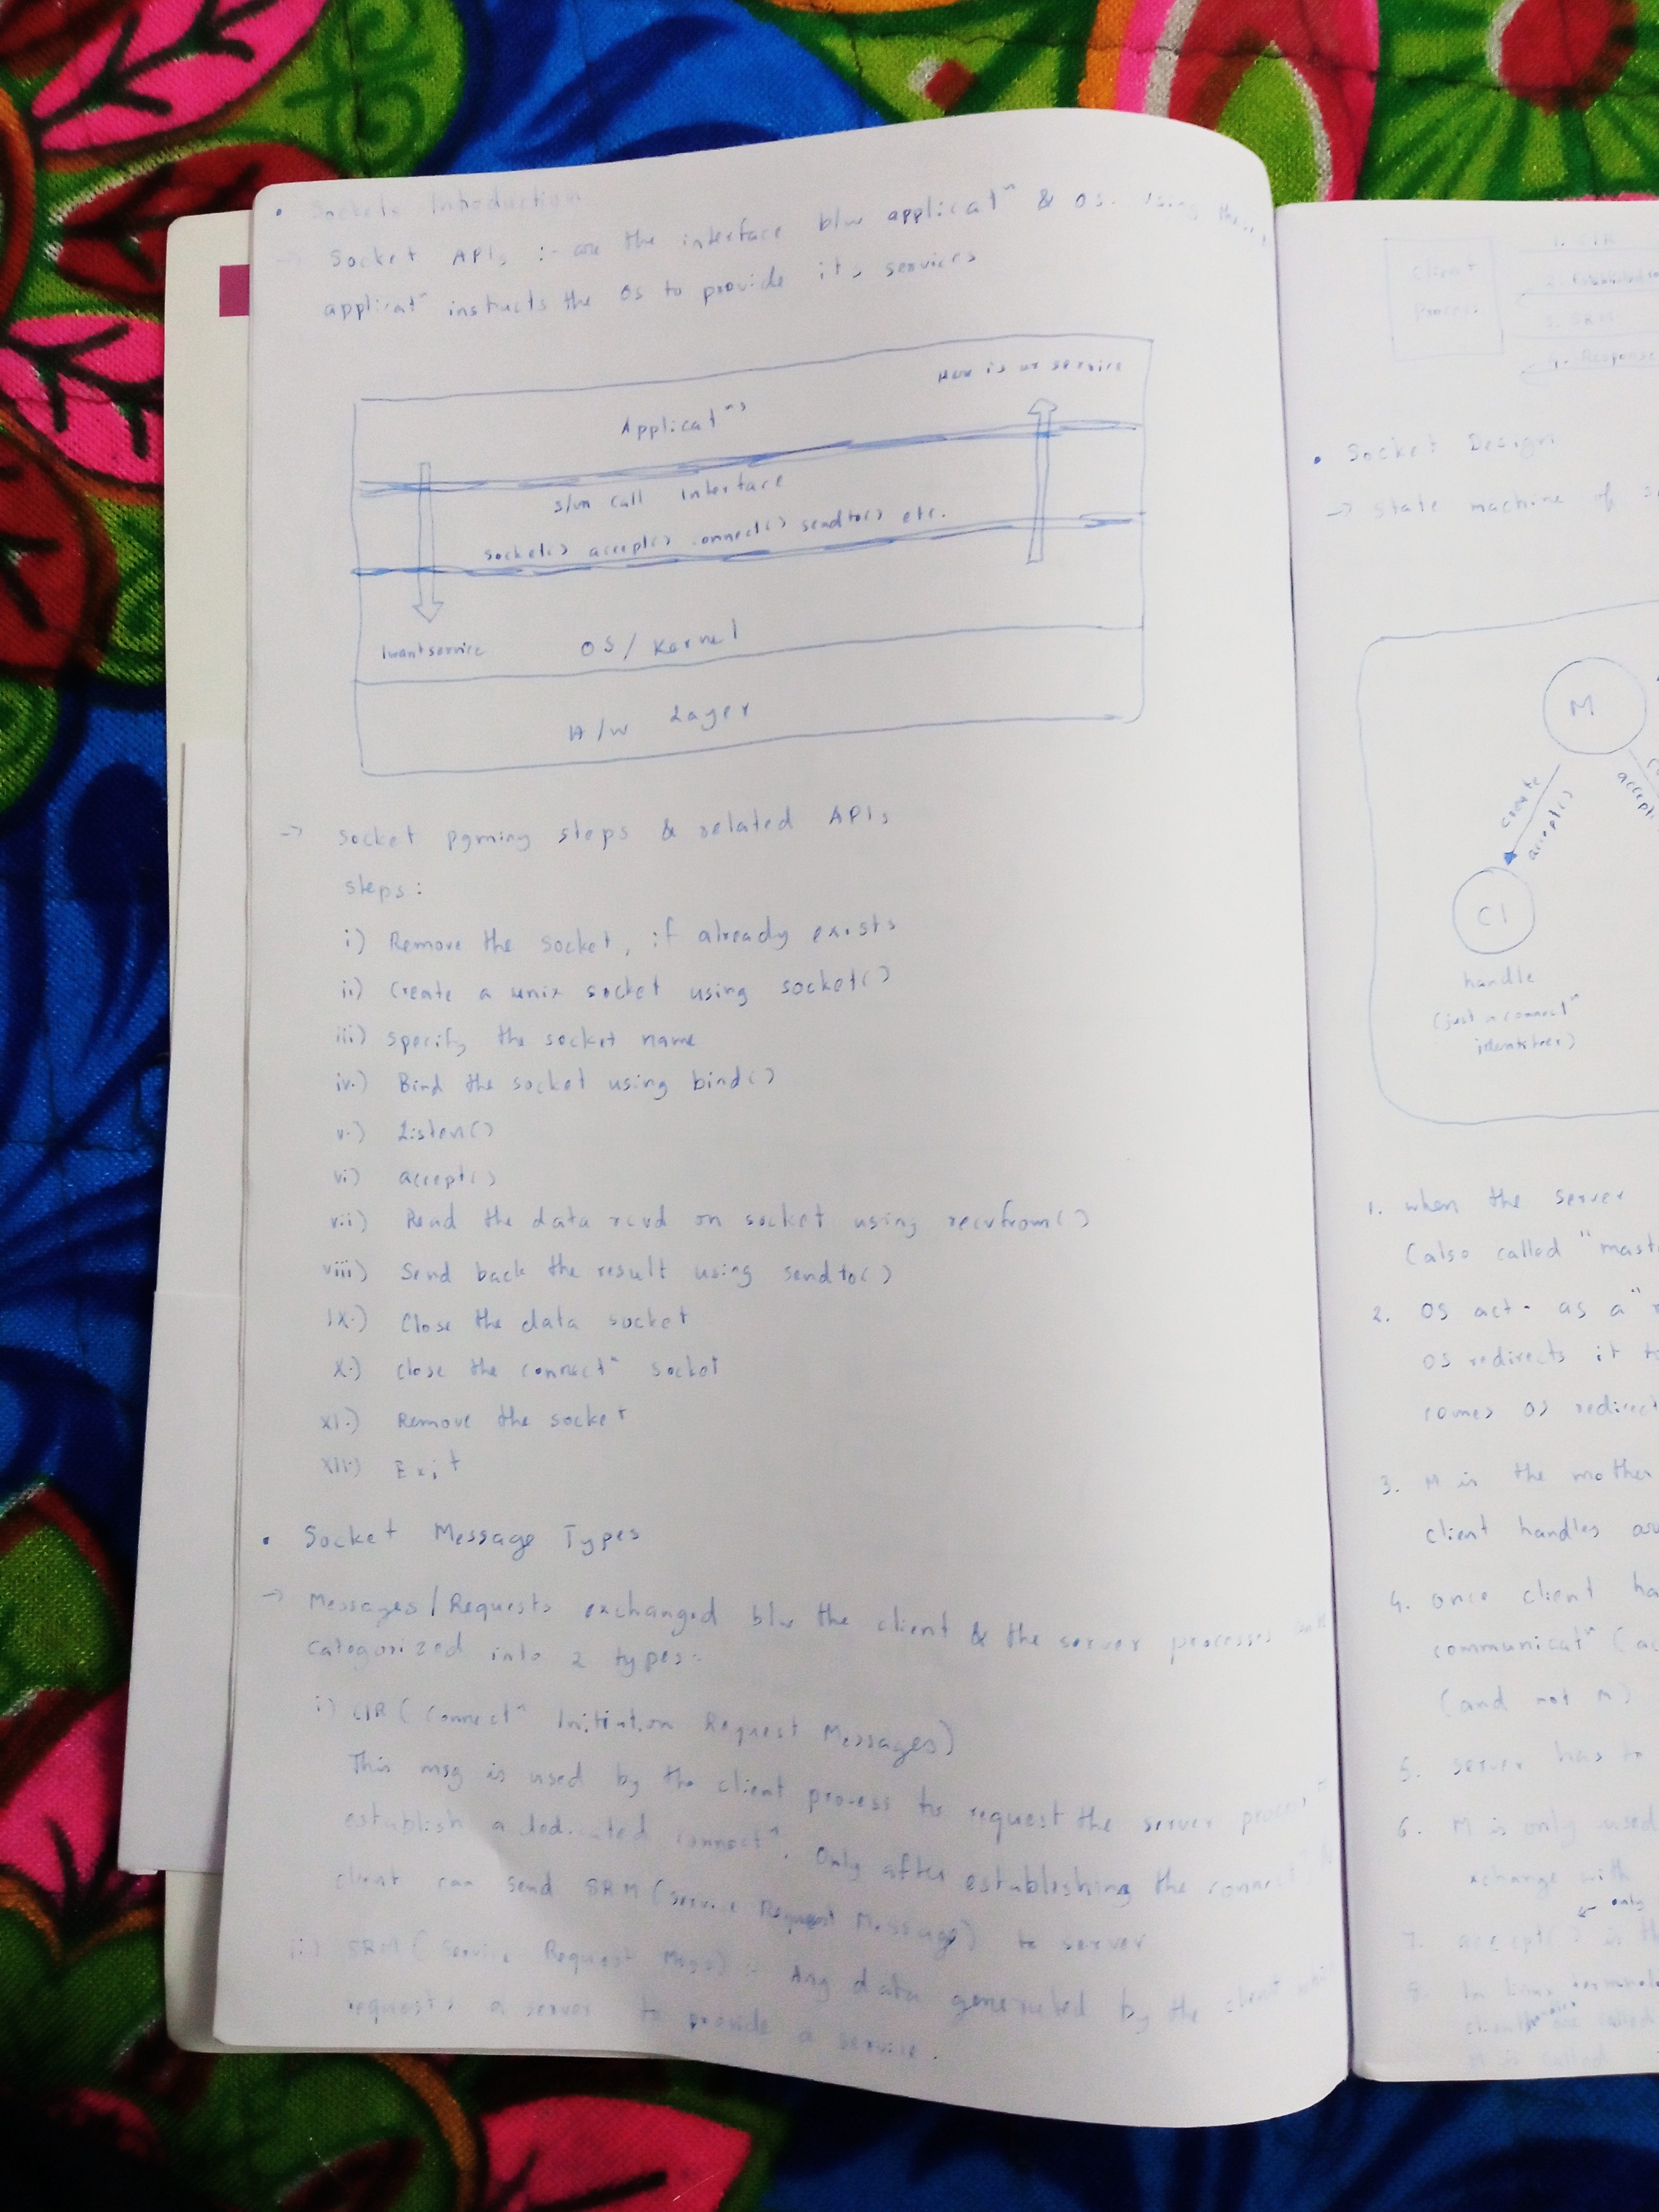 • Sockets Introduction
-> Socket APIs :- are the interface b/w applicatⁿ & OS. Using
applicatⁿ instucts the OS to provide its services
Here is ur service
Applicatⁿs
s/m call interface
socket() accept() connect() sendto() etc.
I want service
OS / Kernel
H/W Layer
-> Socket pgrming steps & related APIs
steps:
i) Remove the socket, if already exists
ii) Create a unix socket using socket()
iii) specify the socket name
iv.) Bind the socket using bind()
v.) Listen()
vi) accept()
vii) Read the data rcvd on socket using recvfrom()
viii) Send back the result using sendto()
ix.) Close the data socket
x.) close the connectⁿ socket
xi.) Remove the socket
xii.) Exit
• Socket Message Types
-> Messages/Requests exchanged b/w the client & the server processes
categorized into 2 types:
i) CIR (Connectⁿ Initiation Request Messages)
This msg is used by the client process to request the server process
establish a dedicated connectⁿ. Only after establishing the connectⁿ
client can send SRM (Service Request Message) to server
ii) SRM (Service Request Msgs) :- Any data generated by the client
requests a server to provide a service.
Client
Process
1. CIR
3. SRM
4. Response
• Socket Design
-> State machine of
M
create
accept()
accept
C1
handle
(just a connectⁿ
identifier)
1. when the server
(also called "mast
2. OS act. as a "
OS redirects it to
comes OS redirect
3. M is the mother
client handles
4. once client ha
communicatⁿ (
(and not M)
5. server has to
6. M is only used
xchange with
only
7. accept() is th
8. In linux
called
M is called